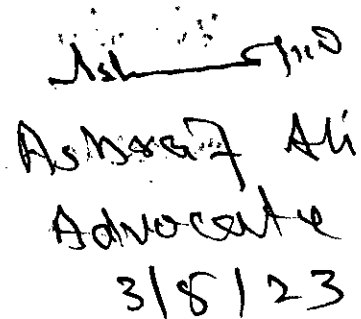 Ashraf Ali
Advocate
3/8/23